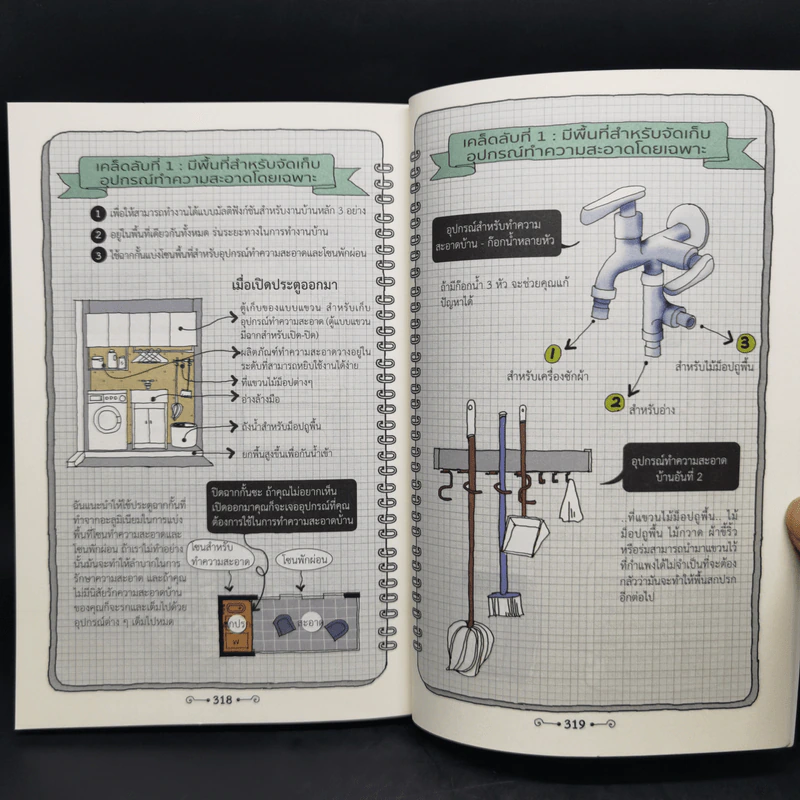 เคล็ดลับที่ 1 : มีพื้นที่สำหรับจัดเก็บ
อุปกรณ์ทำความสะอาดโดยเฉพาะ
1 เพื่อให้สามารถทำงานได้แบบมัลติฟังก์ชันสำหรับงานบ้านหลัก 3 อย่าง
2 อยู่ในพื้นที่เดียวกันทั้งหมด ร่นระยะทางในการทำงานบ้าน
3 ใช้ฉากกั้นแบ่งโซนพื้นที่สำหรับอุปกรณ์ทำความสะอาดและโซนพักผ่อน
เมื่อเปิดประตูออกมา
ตู้เก็บของแบบแขวน สำหรับเก็บ
อุปกรณ์ทำความสะอาด (ตู้แบบแขวน
มีฉากสำหรับเปิด-ปิด)
ผลิตภัณฑ์ทำความสะอาดวางอยู่ใน
ระดับที่สามารถหยิบใช้งานได้ง่าย
ที่แขวนไม้ม็อปต่างๆ
อ่างล้างมือ
ถังน้ำสำหรับม็อปถูพื้น
ยกพื้นสูงขึ้นเพื่อกันน้ำเข้า
ฉันแนะนำให้ใช้ประตูฉากกั้นที่
ทำจากอะลูมิเนียมในการแบ่ง
พื้นที่โซนทำความสะอาดและ
โซนพักผ่อน ถ้าเราไม่ทำอย่าง
นั้นมันจะทำให้ลำบากในการ
รักษาความสะอาด และถ้าคุณ
ไม่มีนิสัยรักความสะอาดบ้าน
ของคุณก็จะรกและเต็มไปด้วย
อุปกรณ์ต่าง ๆ เต็มไปหมด
ปิดฉากกั้นซะ ถ้าคุณไม่อยากเห็น
เปิดออกมาคุณก็จะเจออุปกรณ์ที่คุณ
ต้องการใช้ในการทำความสะอาดบ้าน
โซนสำหรับ
ทำความสะอาด
โซนพักผ่อน
สะอาด
318
เคล็ดลับที่ 1 : มีพื้นที่สำหรับจัดเก็บ
อุปกรณ์ทำความสะอาดโดยเฉพาะ
อุปกรณ์สำหรับทำความ
สะอาดบ้าน - ก๊อกน้ำหลายหัว
ถ้ามีก๊อกน้ำ 3 หัว จะช่วยคุณแก้
ปัญหาได้
1
สำหรับเครื่องซักผ้า
2 สำหรับอ่าง
3
สำหรับไม้ม็อปถูพื้น
อุปกรณ์ทำความสะอาด
บ้านอันที่ 2
..ที่แขวนไม้ม็อปถูพื้น.. ไม้
ม็อปถูพื้น ไม้กวาด ผ้าขี้ริ้ว
หรือร่มสามารถนำมาแขวนไว้
ที่กำแพงได้ไม่จำเป็นที่จะต้อง
กลัวว่ามันจะทำให้พื้นสกปรก
อีกต่อไป
319